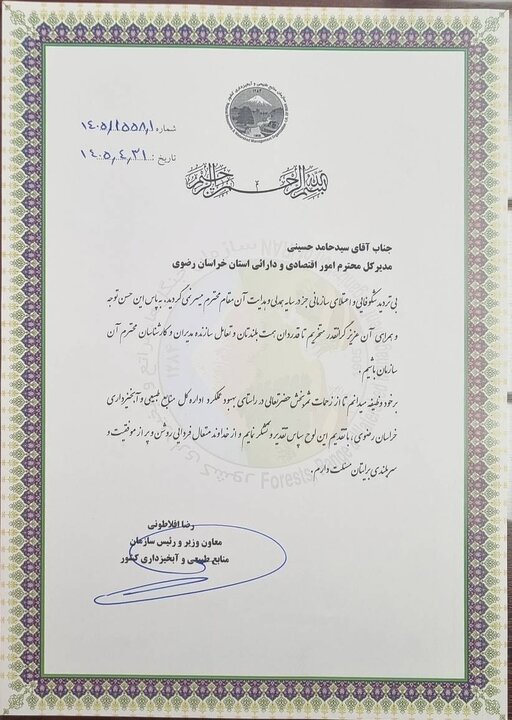 شماره ۱۴۰۵/۱۵۵۸/۱
تاریخ : ۱۴۰۵,۴,۳۱
بسم الله الرحمن الرحیم
جناب آقای سیدحامد حسینی
مدیرکل محترم امور اقتصادی و دارائی استان خراسان رضوی
بی تردید شکوفائی و اعتلای سازمانی جز در سایه همدلی و هدایت آن مقام محترم میسر نمی گردید، به پاس این حسن توجه
و همراهی آن عزیز گرانقدر مفتخریم تا قدردان همت بلندتان و تعامل سازنده مدیران و کارشناسان محترم آن
سازمان باشیم.
بر خود وظیفه میدانم تا از زحمات ثمربخش حضرتعالی در راستای بهبود عملکرد اداره کل منابع طبیعی و آبخیزداری
خراسان رضوی، با تقدیم این لوح سپاس تقدیر و تشکر نمایم و از خداوند متعال فردایی روشن و پر از موفقیت و
سربلندی برایتان مسئلت دارم.
رضا افلاطونی
معاون وزیر و رئیس سازمان
منابع طبیعی و آبخیزداری کشور